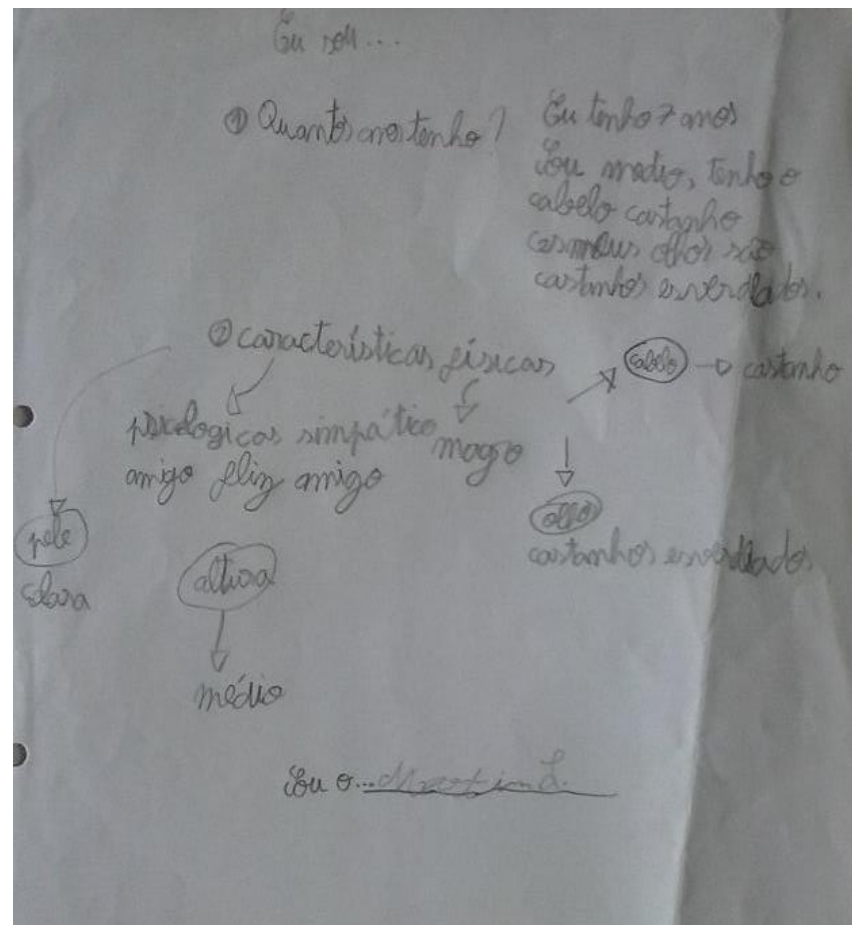 Eu sou...
① Quantos anos tenho?
Eu tenho 7 anos
Sou médio, tenho o
cabelo castanho
e os meus olhos são
castanhos esverdeados.
② características físicas
cabelo → castanho
psicologicas simpático
amigo feliz amigo
magro
olhos
castanhos esverdeados
pele
clara
altura
médio
Sou o... Martim L.